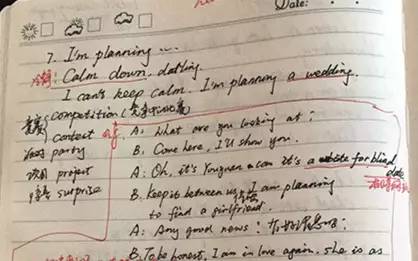 Date:
7. I'm planning ....
冷静: Calm down, darling.
I can't keep calm. I'm planning a wedding.
竞赛 competition (竞争
竞赛 contest
派对 party A: What are you looking at?
项目 project B. Come here, I'll show you.
惊喜 surprise A: Oh, it's Youyuan.com It's a website for blind date
B. Keep it between us, I am planning
to find a girlfriend.
A: Any good news?
B. To be honest, I am in love again. She is as